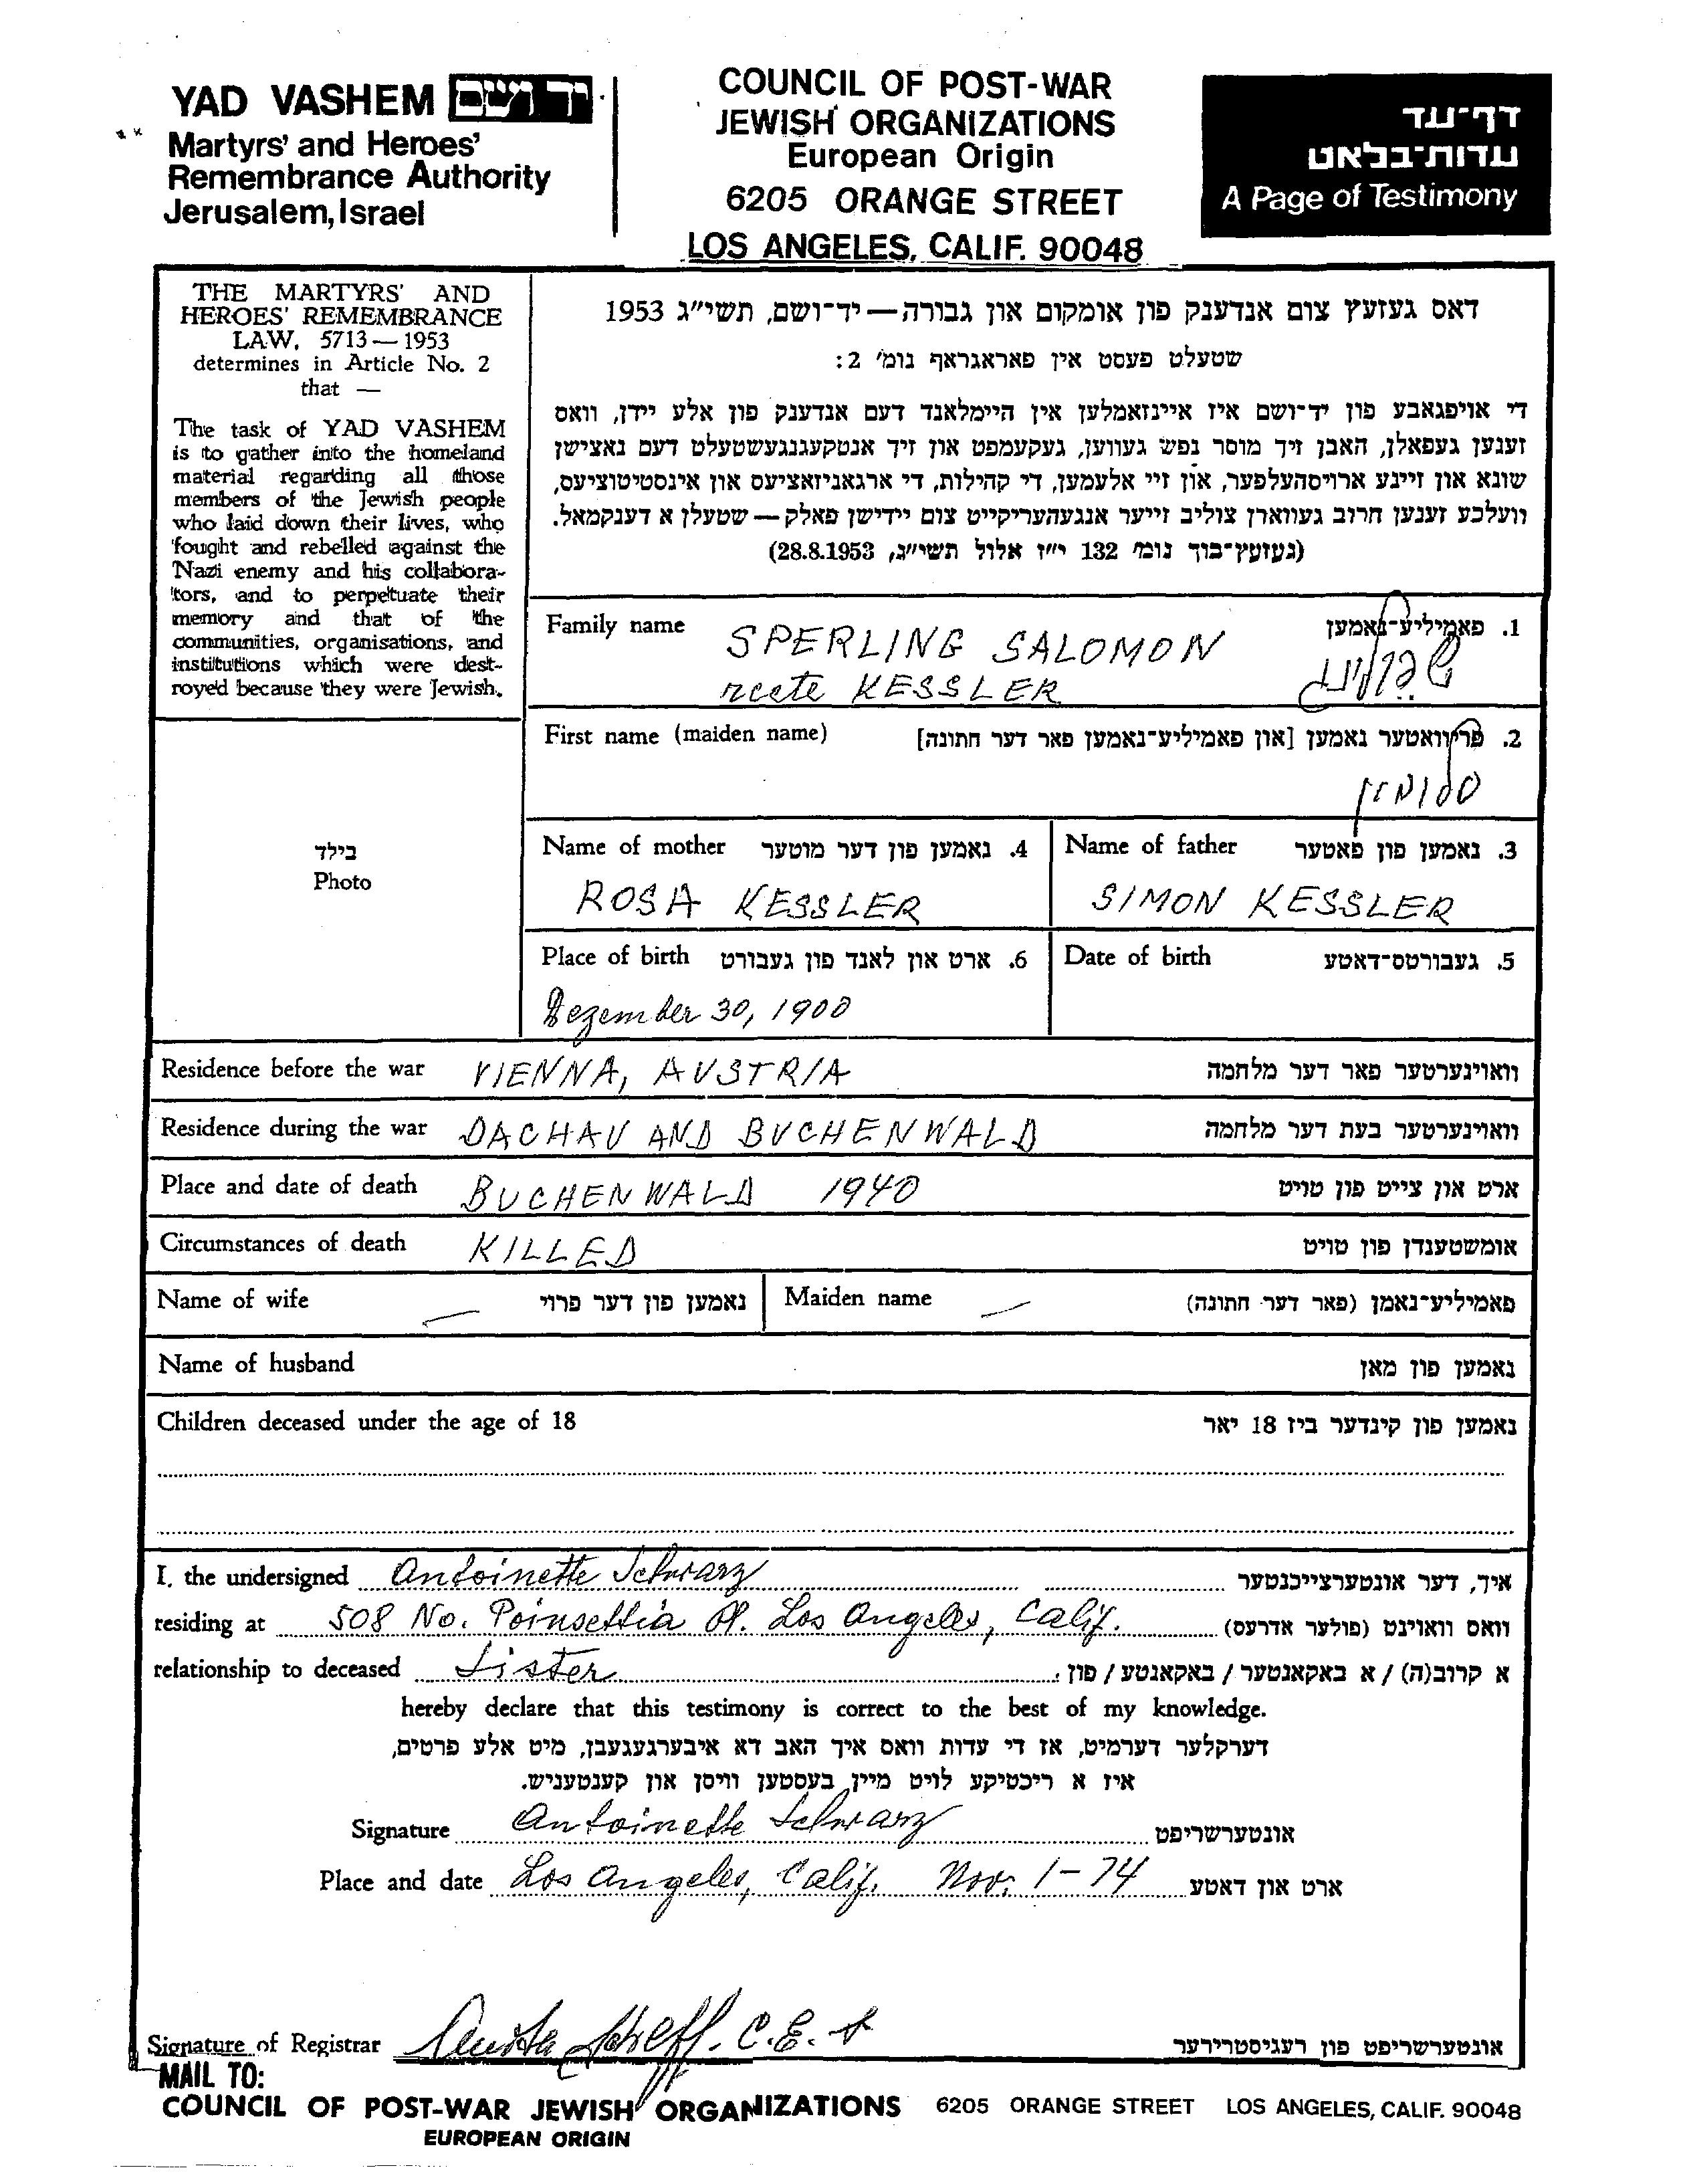 YAD VASHEM יד ושם
Martyrs' and Heroes'
Remembrance Authority
Jerusalem, Israel
COUNCIL OF POST-WAR
JEWISH ORGANIZATIONS
European Origin
6205 ORANGE STREET
LOS ANGELES, CALIF. 90048
דף־עד
עדות־בלאט
A Page of Testimony
THE MARTYRS' AND
HEROES' REMEMBRANCE
LAW, 5713 — 1953
determines in Article No. 2
that —
The task of YAD VASHEM
is to gather into the homeland
material regarding all those
members of the Jewish people
who laid down their lives, who
fought and rebelled against the
Nazi enemy and his collabora-
tors, and to perpetuate their
memory and that of the
communities, organisations, and
institutions which were dest-
royed because they were Jewish.
דאס געזעץ צום אנדענק פון אומקום און גבורה — יד־ושם, תשי"ג 1953
שטעלט פעסט אין פאראגראף נומ' 2:
די אויפגאבע פון יד־ושם איז איינזאמלען אין היימלאנד דעם אנדענק פון אלע יידן, וואס
זענען געפאלן, האבן זיך מוסר נפש געווען, געקעמפט און זיך אנטקעגנגעשטעלט דעם נאצישן
שונא און זיינע ארויסהעלפער, און זיי אלעמען, די קהילות, די ארגאניזאציעס און אינסטיטוציעס,
וועלכע זענען חרוב געווארן צוליב זייער אנגעהעריקייט צום יידישן פאלק — שטעלן א דענקמאל.
(געזעץ־בוך נומ' 132 י"ז אלול תשי"ג, 28.8.1953)
Family name SPERLING SALOMON 1. פאמיליע־נאמען
KESSLER שפרלינג
First name (maiden name) 2. פריוואטער נאמען [און פאמיליע־נאמען פאר דער חתונה]
סלומון
בילד
Photo
Name of mother 4. נאמען פון דער מוטער
ROSA KESSLER
Name of father 3. נאמען פון פאטער
SIMON KESSLER
Place of birth 6. ארט און לאנד פון געבורט
Dezember 30, 1900
Date of birth 5. געבורטס־דאטע
Residence before the war VIENNA, AUSTRIA וואוינערטער פאר דער מלחמה
Residence during the war DACHAU AND BUCHENWALD וואוינערטער בעת דער מלחמה
Place and date of death BUCHENWALD 1940 ארט און צייט פון טויט
Circumstances of death KILLED אומשטענדן פון טויט
Name of wife — נאמען פון דער פרוי
Maiden name — פאמיליע־נאמן (פאר דער חתונה)
Name of husband נאמען פון מאן
Children deceased under the age of 18 נאמען פון קינדער ביז 18 יאר
I, the undersigned Antoinette Schwarz איך, דער אונטערצייכנטער
residing at 508 No. Poinsettia Pl. Los Angeles, Calif. וואס וואוינט (פולער אדרעס)
relationship to deceased Sister א קרוב(ה) / א באקאנטער / באקאנטע / פון:
hereby declare that this testimony is correct to the best of my knowledge.
דערקלער דערמיט, אז די עדות וואס איך האב דא איבערגעגעבן, מיט אלע פרטים,
איז א ריכטיקע לויט מיין בעסטען וויסן און קענטעניש.
Signature Antoinette Schwarz אונטערשריפט
Place and date Los Angeles, Calif. Nov. 1-74 ארט און דאטע
Signature of Registrar C.E. אונטערשריפט פון רעגיסטרירער
MAIL TO:
COUNCIL OF POST-WAR JEWISH ORGANIZATIONS 6205 ORANGE STREET LOS ANGELES, CALIF. 90048
EUROPEAN ORIGIN